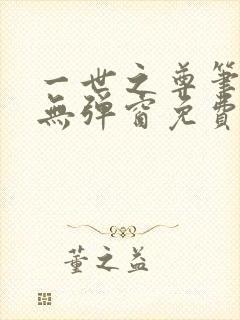 一世之尊筆
無彈窗免費
董之益